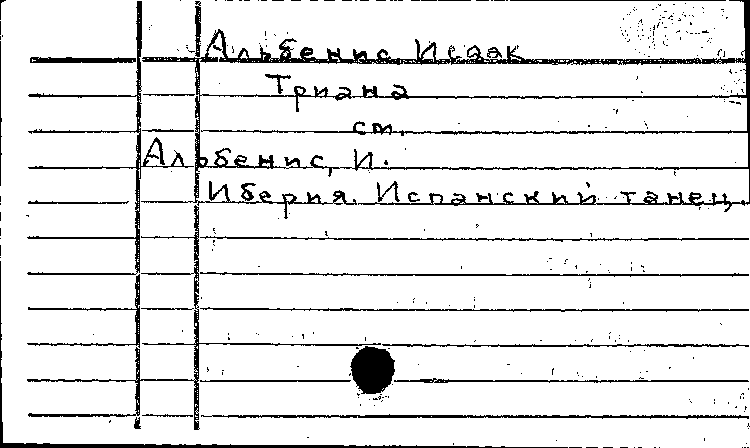 Альбенис, Исаак
Триана
см.
Альбенис, И.
Иберия. Испанский танец.